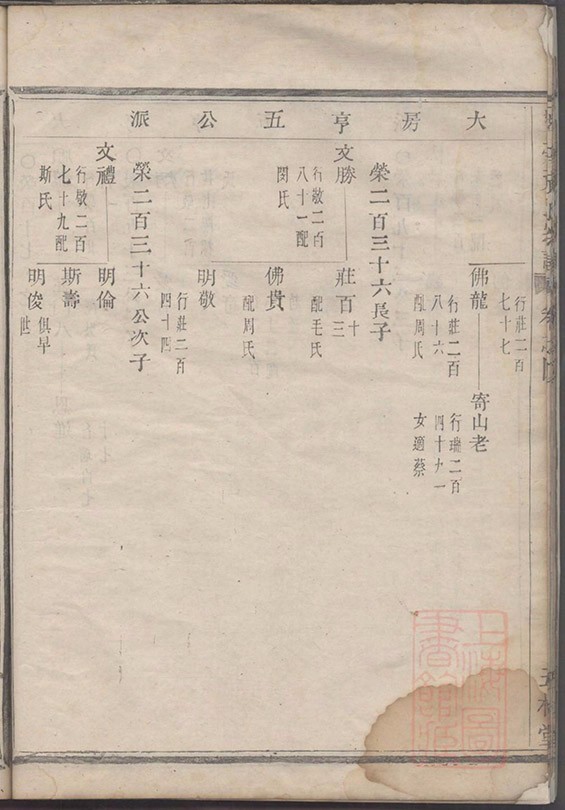 大房亨五公派
行莊二百
七十七
佛龍
行莊二百
八十六
配周氏
寄山老
行瑞二百
四十九一
女適蔡
榮二百三十六長子
文勝
行敬二百
八十一配
閔氏
莊百十三
配毛氏
佛貴
配周氏
明敬
行莊二百
四十四
榮二百三十六公次子
文禮
行敬二百
七十九配
斯氏
明倫
斯壽
明俊
俱早
世
上海圖
書館藏